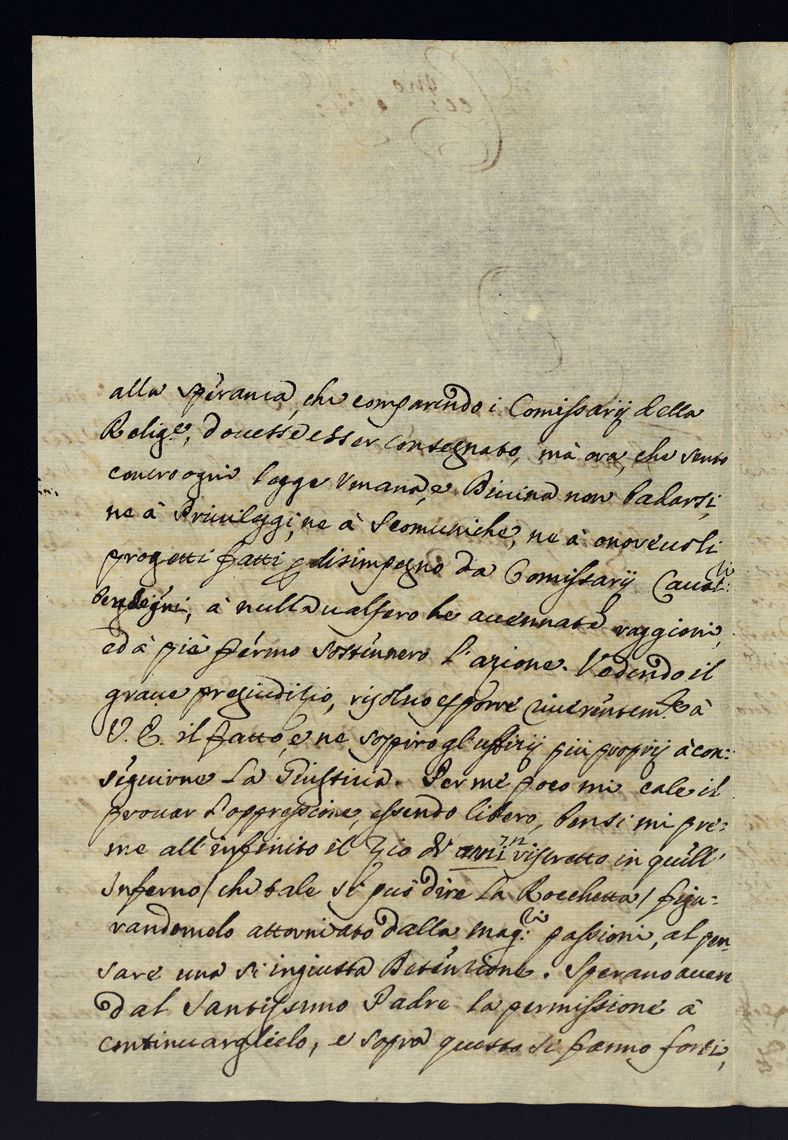 alla speranza, che comparendo i Comissarij della
Relig.e, douesse esser consegnato, mà ora, che sento
contro ogni legge Vmana, e Diuina non badarsi,
ne à Priuileggi, ne à Scomuniche, ne à onoreuoli
progetti fatti p disimpegno da Comissarij Caual:ri
benigni, à nulla ualsero le accennate raggioni,
ed à piè fermo sostennero l'azione. Vedendo il
graue pregiuditio, risoluo esporre riuerentem.te à
V. E. il fatto, e ne sospiro gl'uffizij più proprij à con:
seguirne la Giustitia. Per me poco mi cale il
prouar l'oppressione, essendo libero, bensi mi pre:
me all'infinito il Zio di anni 72 ristretto in quell'
Inferno (che tale si può dire la Rocchetta) figu:
randomelo attorniato dalla mag:ri passioni, al pen
sare una si ingiusta Detenzione. Sperano auere
dal Santissimo Padre la permissione à
continuarglielo, e sopra questo si fanno forti,